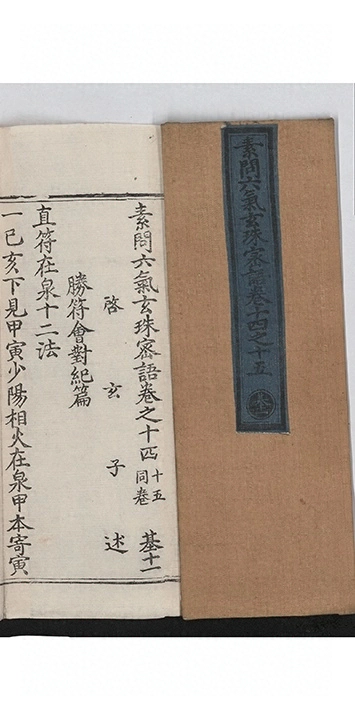 素問六氣玄珠密語卷十四之十五
素問六氣玄珠密語卷之十四 十五同卷 基十一
啓玄子述
勝符會對紀篇
直符在泉十二法
一巳亥下見甲寅少陽相火在泉甲本寄寅